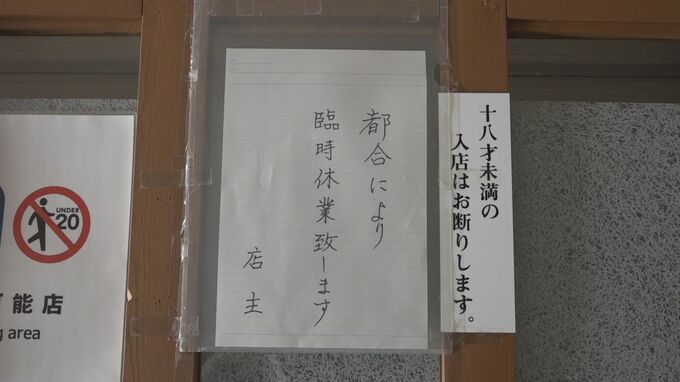 都合により
臨時休業致します
店主
十八才未満の
入店はお断りします。
UNDER
20
能店
area